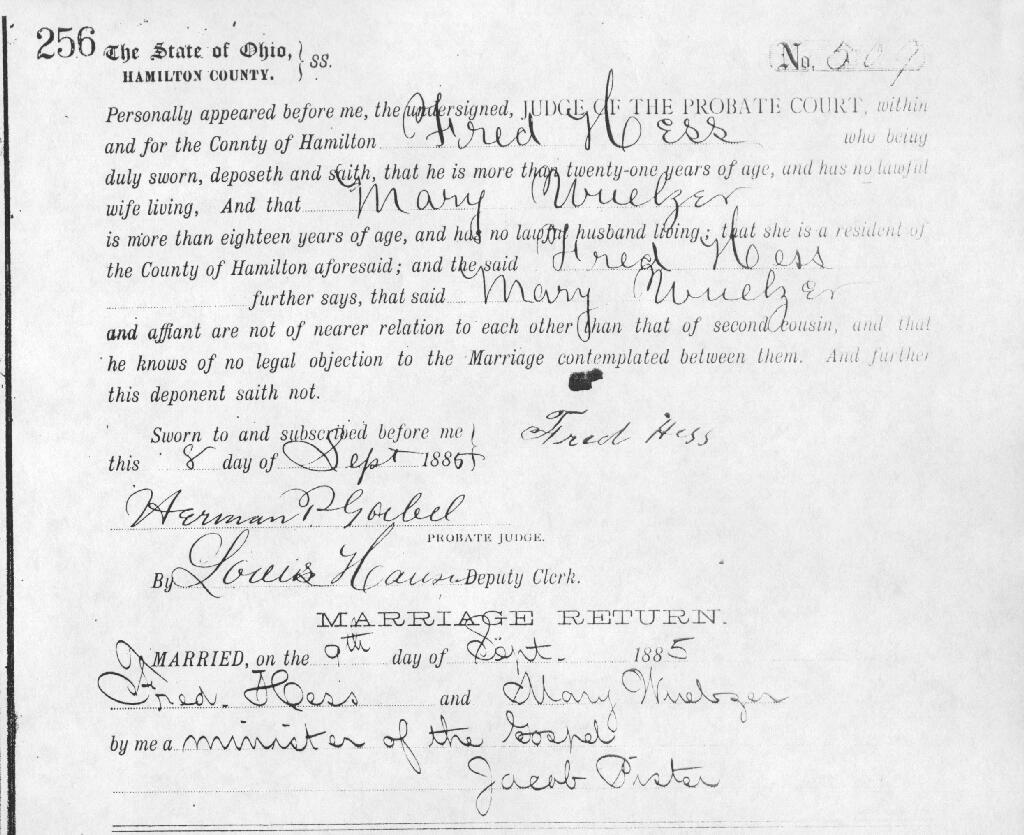 256 The State of Ohio, } ss. No. 509
HAMILTON COUNTY.
Personally appeared before me, the undersigned, JUDGE OF THE PROBATE COURT, within
and for the Connty of Hamilton Fred Hess who being
duly sworn, deposeth and saith, that he is more than twenty-one years of age, and has no lawful
wife living, And that Mary Wuelzer
is more than eighteen years of age, and has no lawful husband living; that she is a resident of
the County of Hamilton aforesaid; and the said Fred Hess
further says, that said Mary Wuelzer
and affiant are not of nearer relation to each other than that of second cousin, and that
he knows of no legal objection to the Marriage contemplated between them. And further
this deponent saith not.
Sworn to and subscribed before me } Fred Hess
this 8 day of Sept 1885
Herman P. Goebel
PROBATE JUDGE.
By Louis Hauser Deputy Clerk.
MARRIAGE RETURN.
MARRIED, on the 9th day of Sept. 1885
Fred. Hess and Mary Wuelzer
by me a minister of the Gospel
Jacob Pister